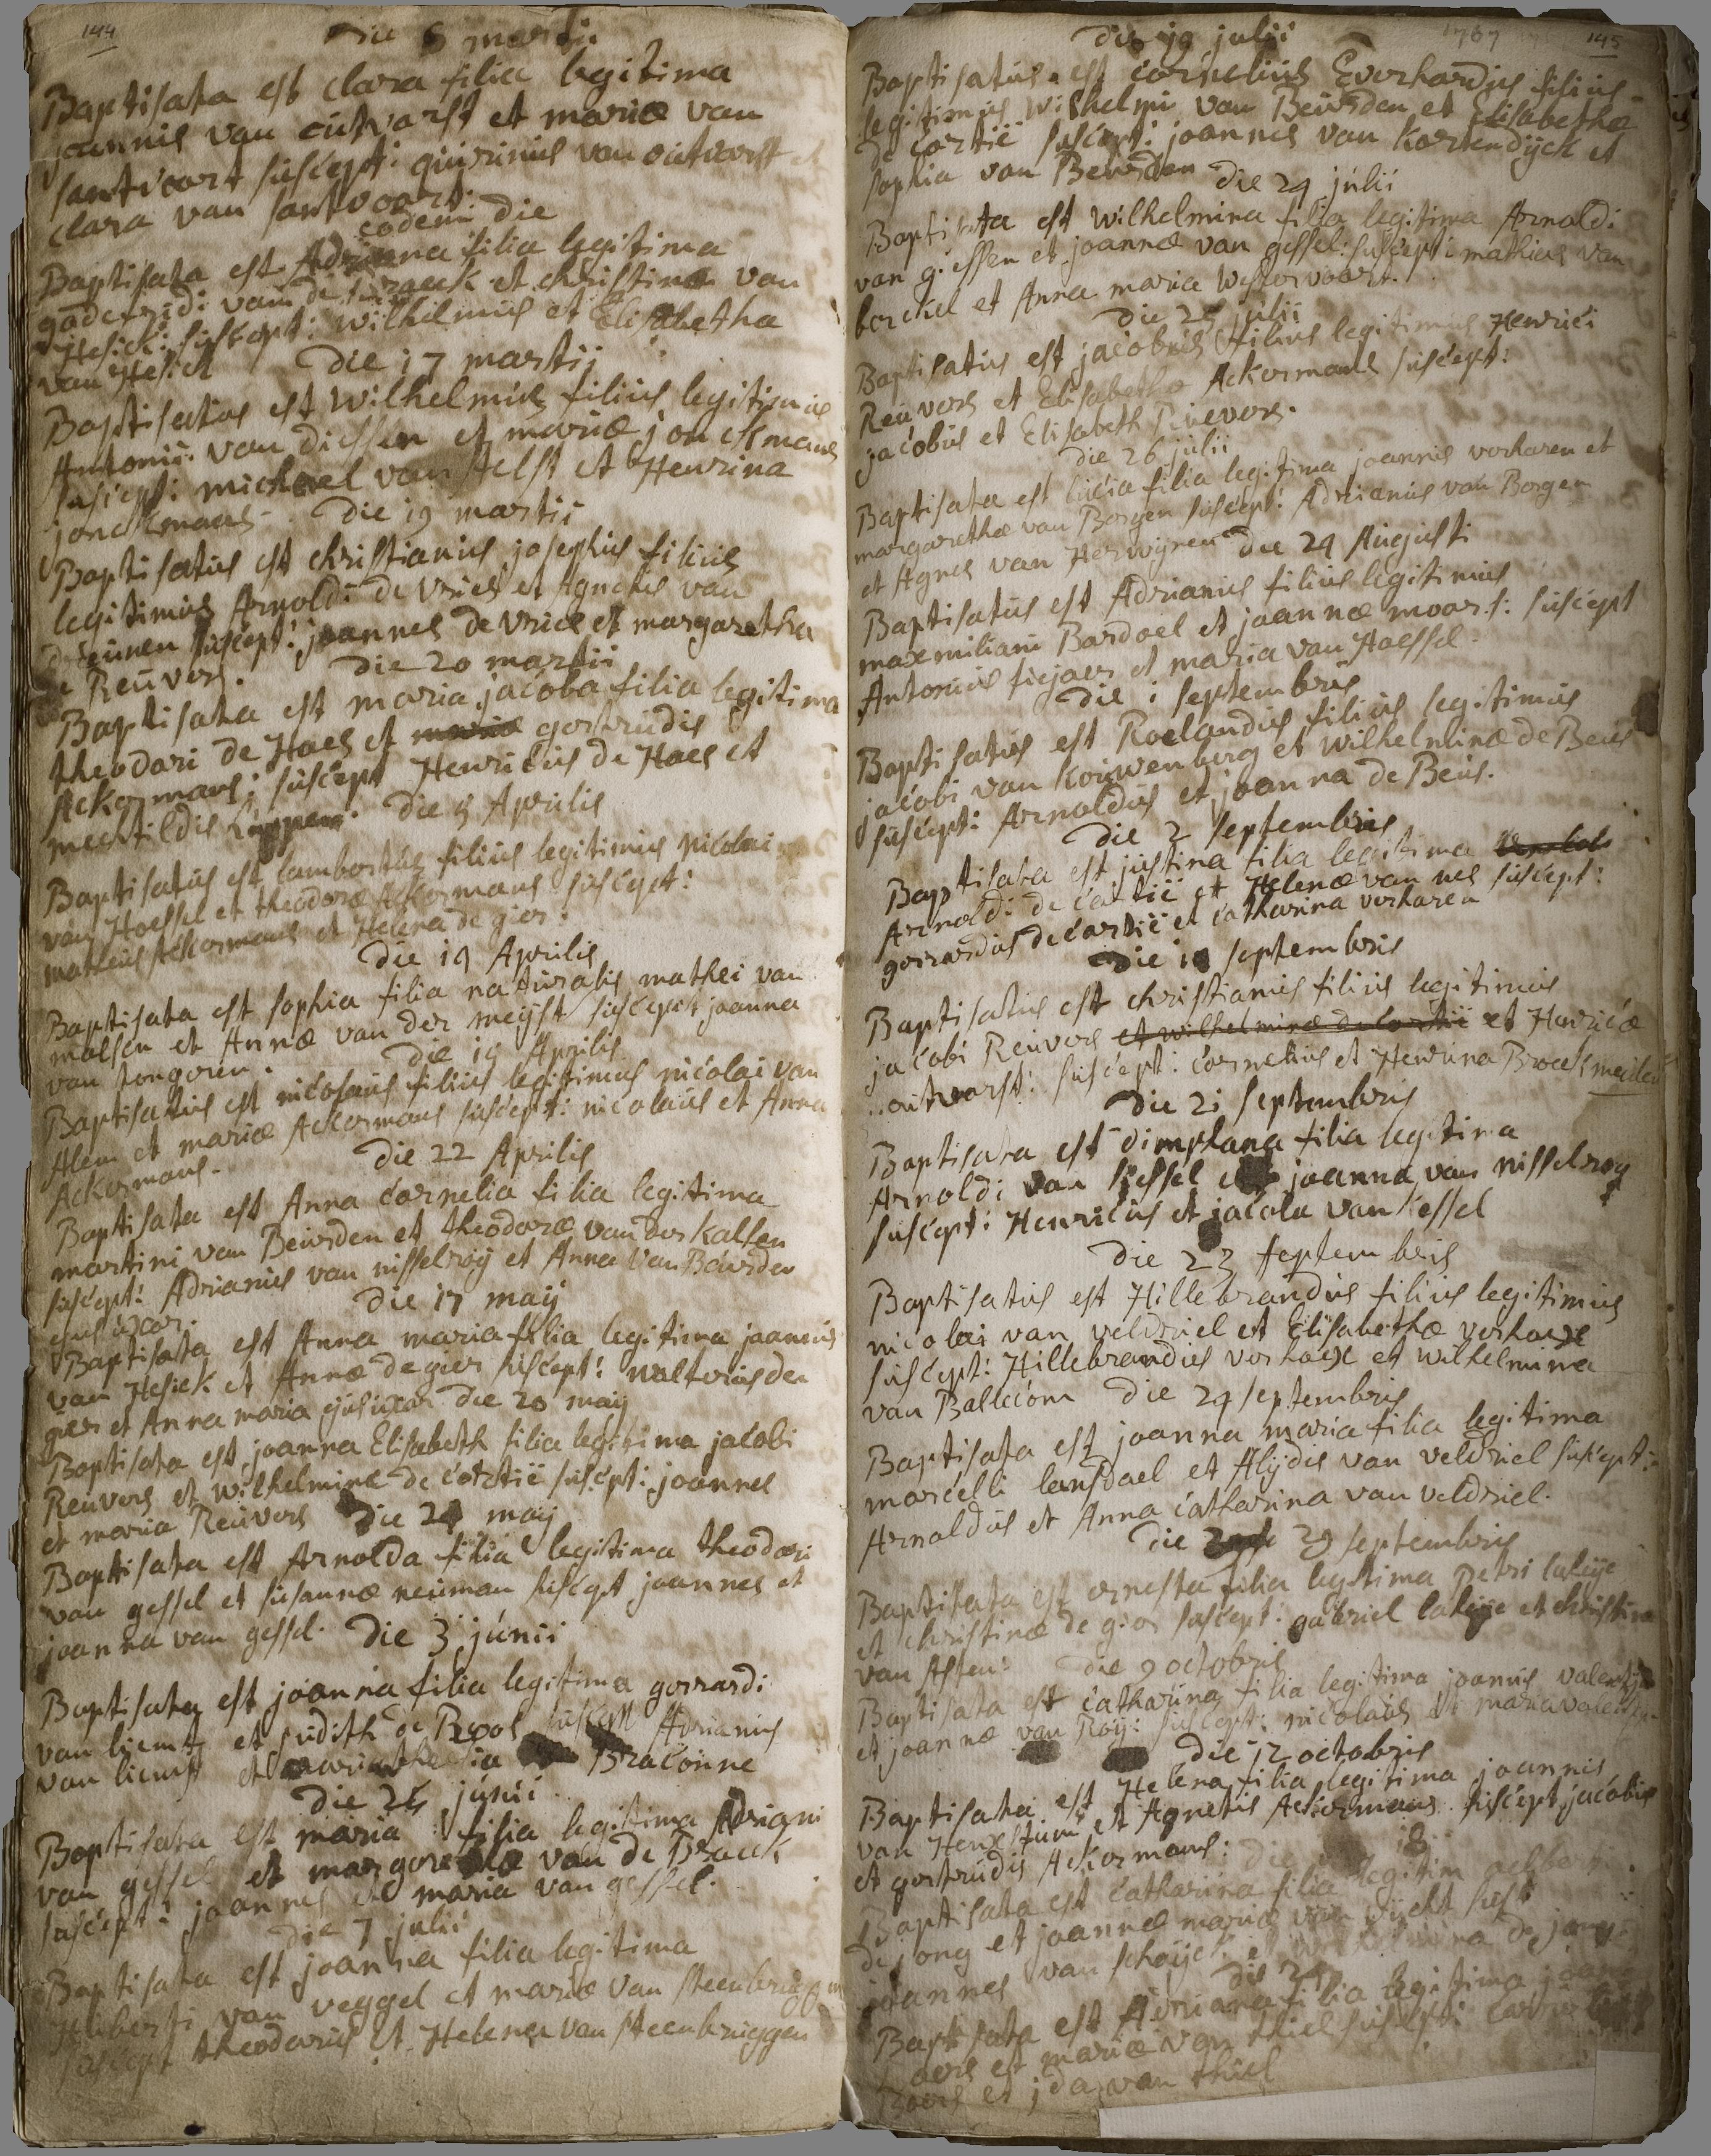 144
Die 6 martii
Baptisata est clara filia legitima
joannis van outvorst et mariæ van
santvoort suscept: quirinus van outvorst et
clara van santvoort.
eodem die
Baptisata est Adriana filia legitima
godefridi van de braeck et christinæ van
Hesick: suscept: wilhelmus et Elisabetha
van Hesick
Die 17 martii
Baptisatus est wilhelmus filius legitimus
Antonii van diessen et mariæ jonckmans
suscept: michael van Aelst et Henrina
jonckmans.
Die 19 martii
Baptisatus est christianus josephus filius
legitimus Arnoldi de vries et Agnetis van
Heunen suscept: joannes de vries et margaretha
de Reuvers.
Die 20 martii
Baptisata est maria jacoba filia legitima
theodori de Haes et mariæ gertrudis
Ackermans; suscept Henricus de Haes et
mechtildis Cuppens.
Die 5 Aprilis
Baptisatus est lambertus filius legitimus nicolai
van Hoessel et theodoræ Ackermans suscept:
matheus Ackermans et Helena de gier.
Die 19 Aprilis
Baptisata est sophia filia naturalis mathei van
malsen et Annæ van der meijst suscepit joanna
van tongeren.
Die 19 Aprilis
Baptisatus est nicolaus filius legitimus nicolai van
Alem et mariæ Ackermans suscept: nicolaus et Anna
Ackermans.
Die 22 Aprilis
Baptisata est Anna cornelia filia legitima
martini van Beursden et theodoræ van der kallen
suscept: Adrianus van nisselroij et Anna van Beursden
ejus uxor.
Die 17 maij
Baptisata est Anna maria filia legitima joannis
van Hesick et Annæ de gier suscept: walterus de
gier et Anna maria ejus uxor
Die 20 maij
Baptisata est joanna Elisabeth filia legitima jacobi
Reuvers et wilhelminæ de cortië suscept: joannes
et maria Reuvers
Die 24 maij
Baptisata est Arnolda filia legitima theodori
van gessel et susannæ neuman suscept joannes et
joanna van gessel.
Die 3 junii
Baptisata est joanna filia legitima gerrardi
van liemt et judith de RooS suscept Adrianus
van liempt et Braconne
Die 24 junii
Baptisata est maria filia legitima Adriani
van gessel et margarethæ van de Braeck
suscept: joannes et maria van gessel.
Die 7 julii
Baptisata est joanna filia legitima
Huberti van veggel et mariæ van steenbruggen
suscept theodorus et Helena van steenbruggen
1767
145
Die 19 julii
Baptisatus est cornelius Everhardus filius
legitimus wilhelmi van Beursden et Elisabethæ
de cortië suscept: joannes van kortendijck et
sophia van Beursden
Die 24 julii
Baptisata est wilhelmina filia legitima Arnoldi
van giessen et joannæ van gessel: suscept: mathias van
berckel et Anna maria westervoort.
Die 25 julii
Baptisatus est jacobus filius legitimus Henrici
Reuvers et Elisabethæ Ackermans suscept:
jacobus et Elisabeth Rievers.
Die 26 julii
Baptisata est lucia filia legitima joannis verharen et
margarethæ van Bergen suscept: Adrianus van Bergen
et Agnes van Herwijnen
Die 24 Augusti
Baptisatus est Adrianus filius legitimus
maximiliani Bardoel et joannæ moors: suscept
Antonius siejaers et maria van Haessel.
Die 1 septembris
Baptisatus est Roelandus filius legitimus
jacobi van kouwenberg et wilhelminæ de Beus
suscept: Arnoldus et joanna de Beus.
Die 2 septembris
Baptisata est justina filia legitima
Arnoldi de cartië et Helenæ van nes suscept:
gerrardus de cortië et catharina verharen
Die 18 septembris
Baptisatus est christianus filius legitimus
jacobi Reuvers et wilhelminæ de cortië et Henricæ
outvorst: suscept: cornelius et Henrina Broecksmeulen
Die 21 septembris
Baptisata est dimphana filia legitima
Arnoldi van kessel et joanna van nisselroy
suscept: Henricus et jacoba van kessel
Die 23 septembris
Baptisatus est Hillebrandus filius legitimus
nicolai van veldriel et Elisabethæ verhage
suscept: Hillebrandus verhage et wilhelmina
van Ballecom
Die 24 septembris
Baptisata est joanna maria filia legitima
marcelli lansdael et Alijdis van veldriel suscept:
Arnoldus et Anna catharina van veldriel.
Die 29 septembris
Baptisata est ernesta filia legitima petri lakeije
et christinæ de gier suscept: gabriel lakeije et christina
van Asten:
Die 9 octobris
Baptisata est catharina filia legitima joannis valentijn
et joannæ van Roij: suscept: nicolaus et maria valentijn
Die 12 octobris
Baptisata est Helena filia legitima joannis
van Henxstum et Agnetis Ackermans suscept: jacobus
et gertrudis Ackermans:
Die 18
Baptisata est catharina filia legitim
de jong et joannæ mariæ van Dijckt sust
joannes van schaijck et wilhelmina de jong
Die 24
Baptisata est Adriana filia legitima joannis
et mariæ van thiel suscept:
et jda van thiel